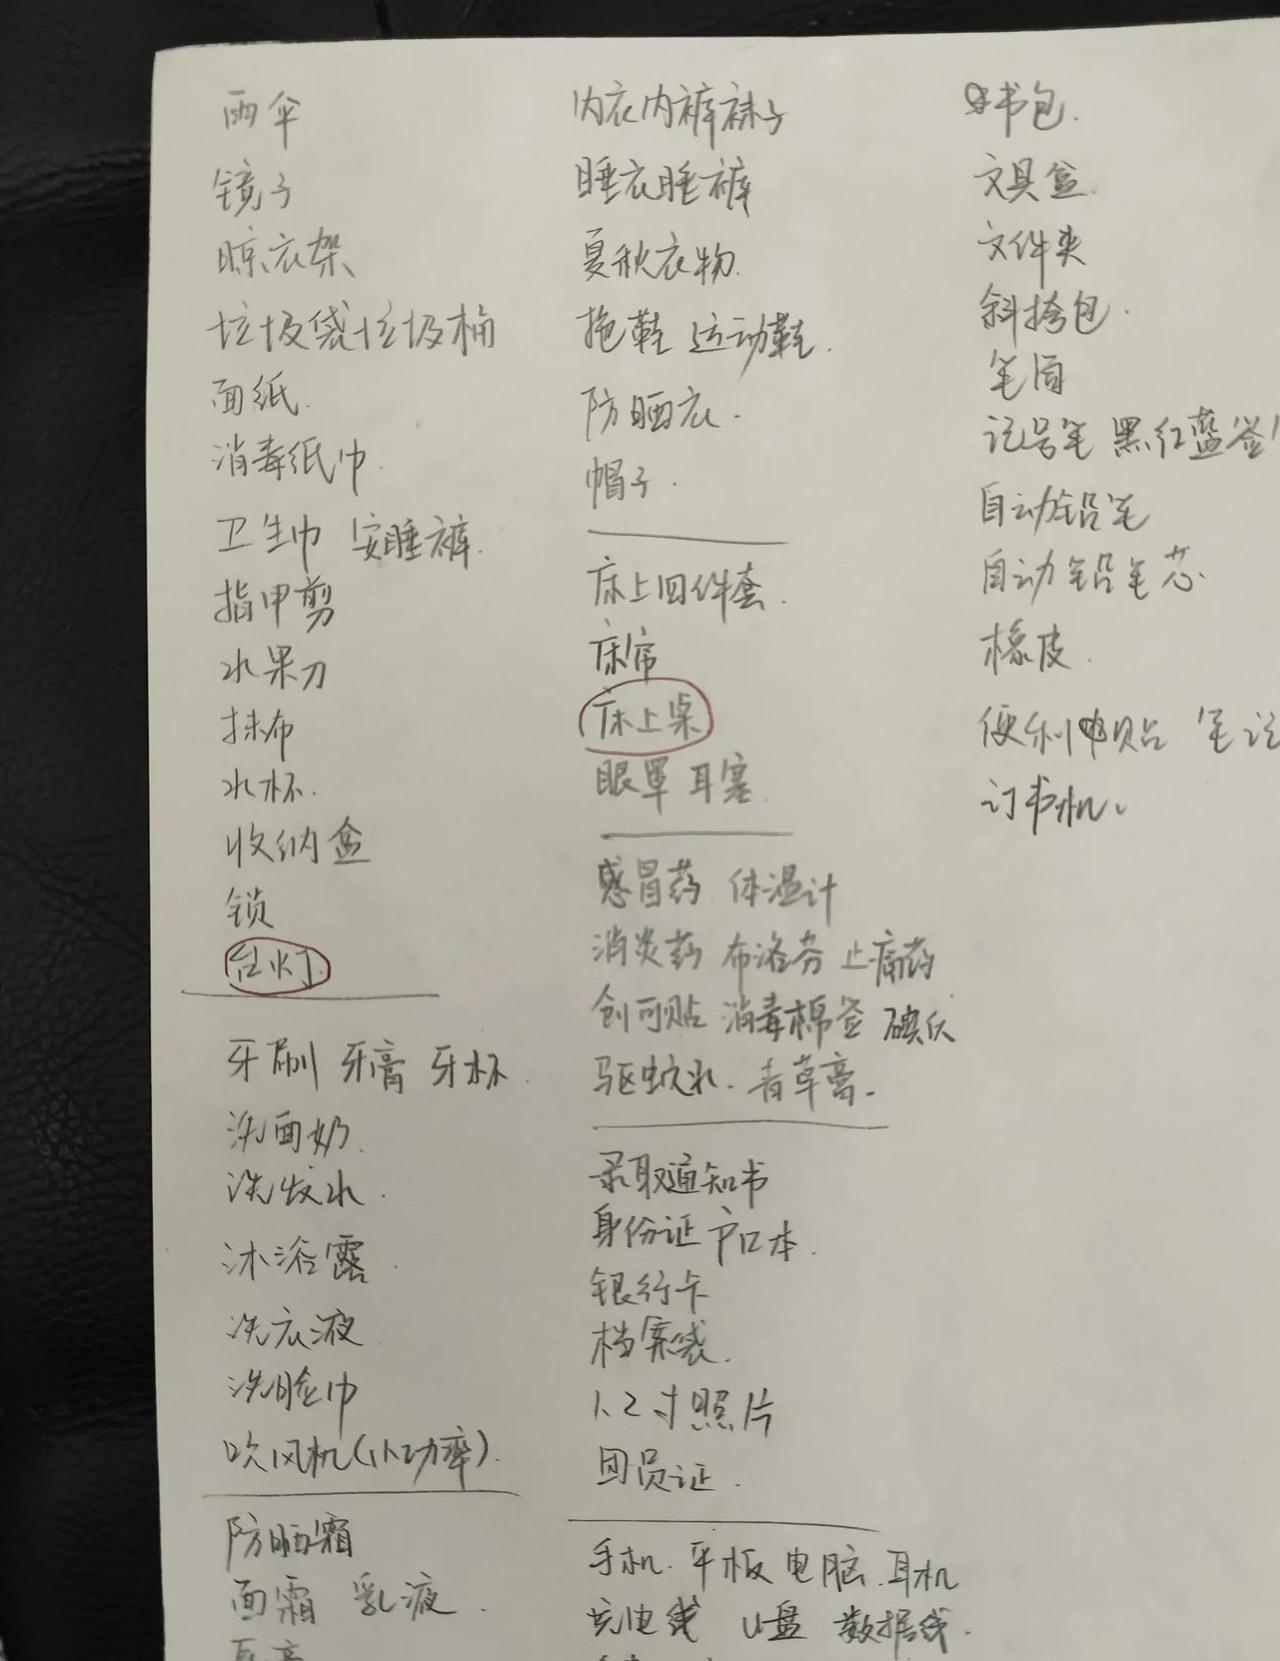 雨伞
镜子
晾衣架
垃圾袋垃圾桶
面纸.
消毒纸巾.
卫生巾 安睡裤.
指甲剪
水果刀
抹布
水杯.
收纳盒
锁
台灯.
牙刷 牙膏 牙杯.
洗面奶.
洗发水.
沐浴露.
洗衣液.
洗脸巾
吹风机(小功率).
防晒霜
面霜 乳液.
内衣内裤袜子
睡衣睡裤
夏秋衣物.
拖鞋 运动鞋.
防晒衣.
帽子.
床上四件套.
床帘
床上桌
眼罩 耳塞.
感冒药 体温计
消炎药 布洛芬 止痛药
创可贴 消毒棉签 碘伏
驱蚊水. 青草膏.
录取通知书
身份证 户口本.
银行卡
档案袋.
1、2寸照片
团员证.
手机. 平板 电脑. 耳机
充电线 U盘 数据线.
书包.
文具盒.
文件夹
斜挎包.
笔筒
记号笔 黑红蓝签
自动铅笔
自动铅笔芯.
橡皮.
便利贴 笔记
订书机.